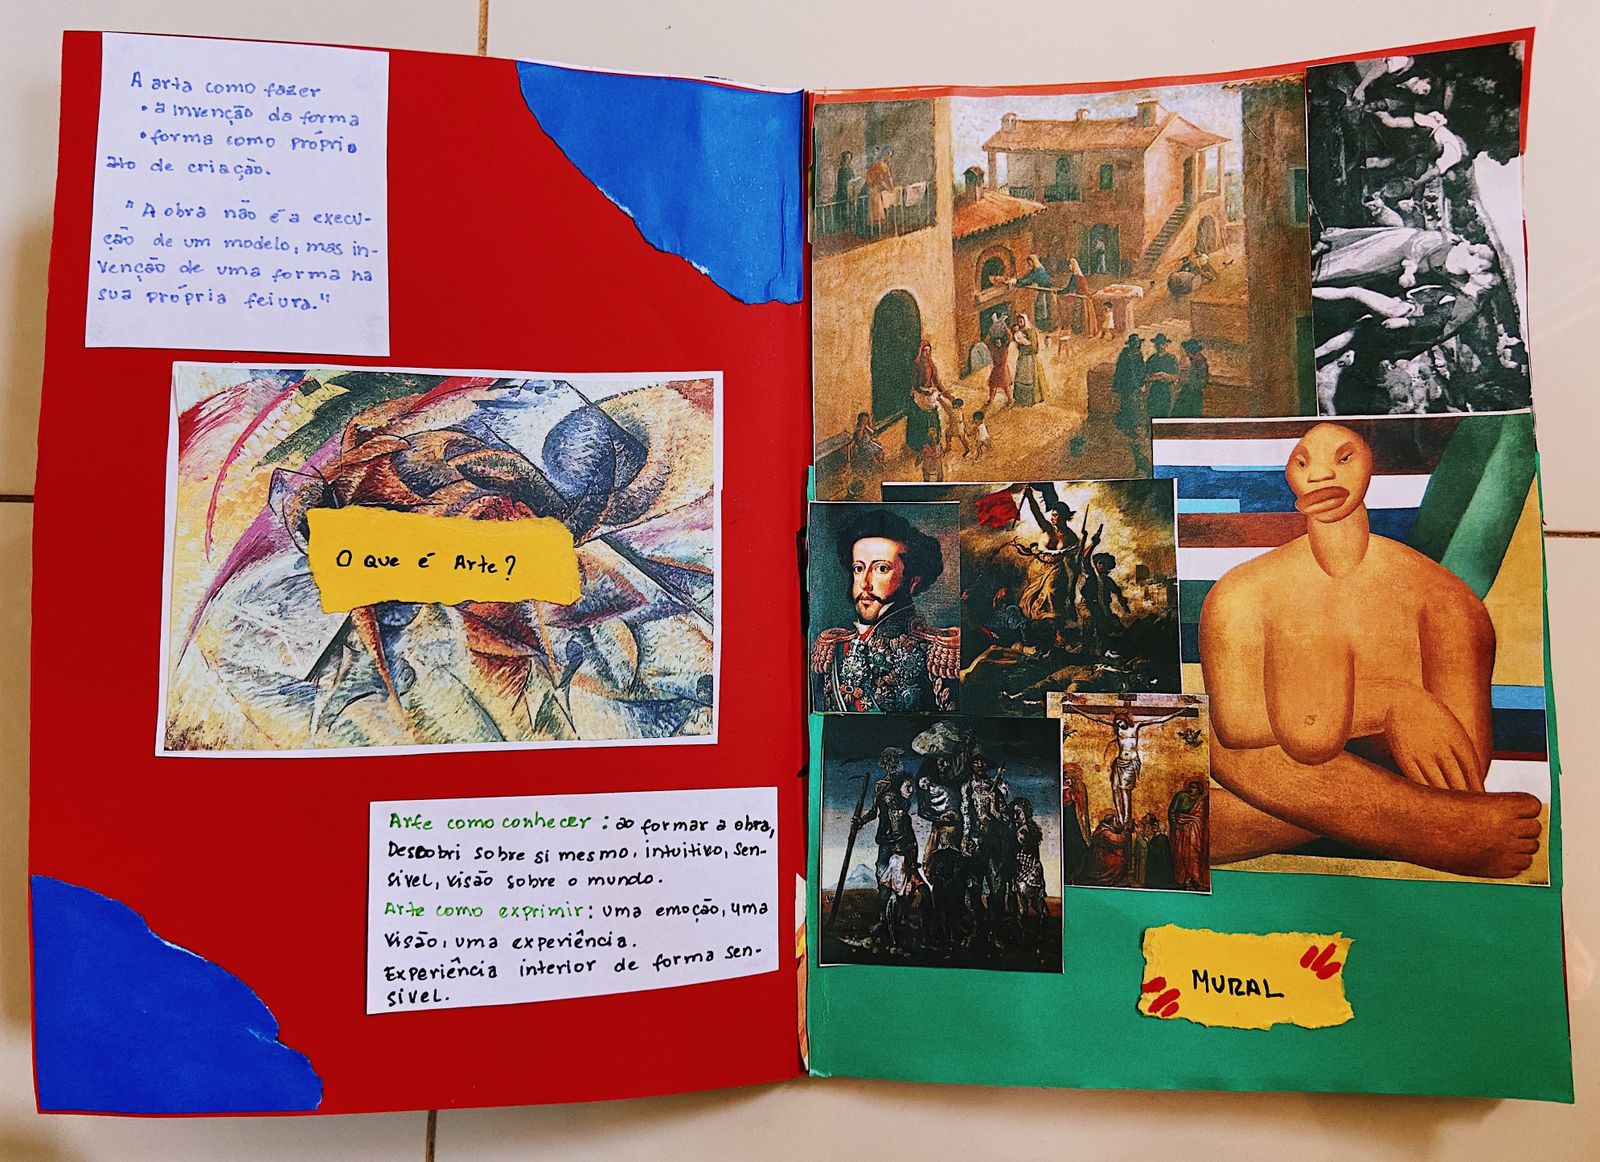 A arta como fazer
• a invenção da forma
• forma como própria
ato de criação.
"A obra não é a execu-
ção de um modelo, mas in-
venção de uma forma na
sua própria feiura."
O que é Arte?
Arte como conhecer: ao formar a obra,
Descobri sobre si mesmo, intuitivo, sen-
sivel, visão sobre o mundo.
Arte como exprimir: uma emoção, uma
visão, uma experiência.
Experiência interior de forma sen-
sivel.
MURAL